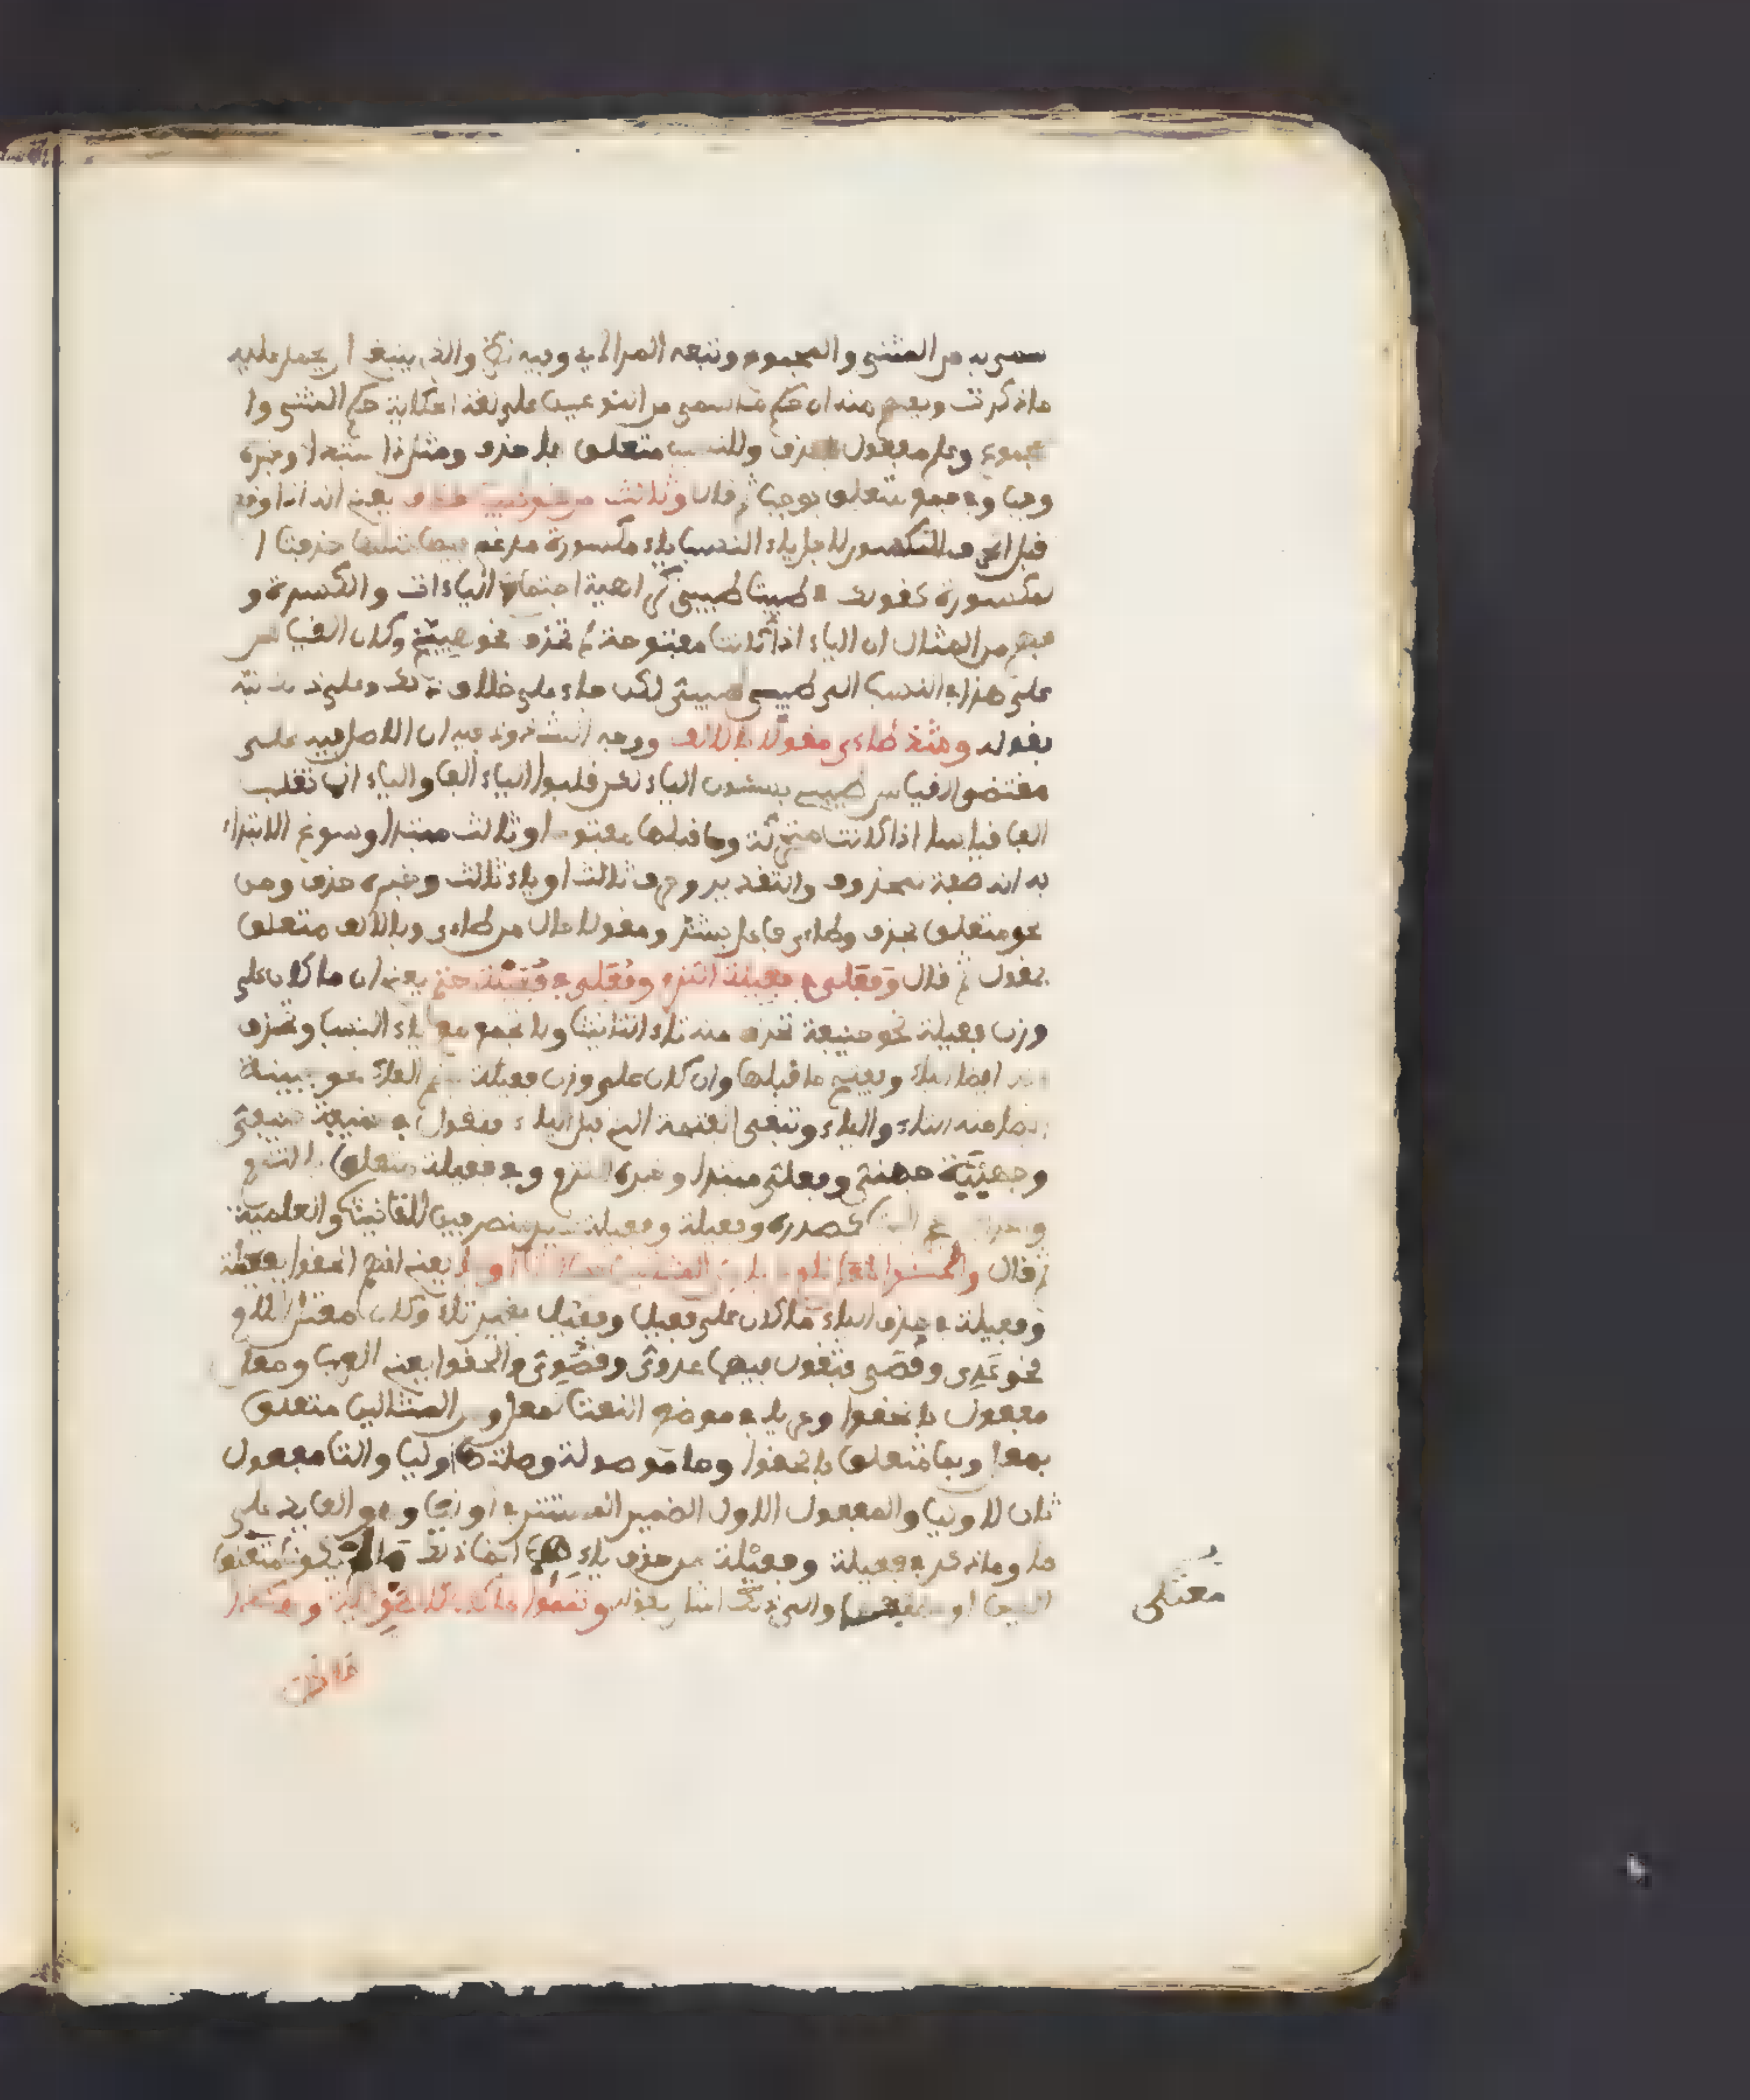 سمى به من المثنى والمجموع وتبعه المرادي وفيه نظر والذي ينبغي ان يحمل عليه
ما ذكرت ويفهم منه ان حكم ما سمى من النوعين على لغة الحكاية حكم المثنى وا
لمجموع وعلم مفعول بحذف وللنسب متعلق باحذف ومثل ذا مبتدا وخبره
وجب وفي جمع متعلق بوجب ثم قال وثالث من نحو طيب حذف يعني انه اذا وقع
قبل الحرف المكسور لاجل ياء النسب ياء مكسورة مدغم فيها مثلها حذفت ا
لمكسورة كقولك في طيب طيبي كراهية اجتماع الياءات والكسرة و
فهم من المثال ان الياء اذا كانت مفتوحة لم تحذف نحو هبيخ وكان القياس
على هذا في النسب الى طيئ طيئي لكن جاء على خلاف ذلك وعلى ذلك نبه
بقوله وشذ طاءى مقولا بالالف ووجه الشذوذ فيه ان الاصل فيه على
مقتضى القياس طيئي بسكون الياء لكن قلبوا الياء الفا والياء انما تقلب
الفا قياسا اذا كانت متحركة وما قبلها مفتوحا وثالث مبتدا وسوغ الابتداء
به انه صفة لمحذوف والتقدير وحرف ثالث او ياء ثالث وخبره حذف ومن
نحو متعلق بحذف وطاءى فاعل بشذ ومقولا حال من طاءى وبالالف متعلق
بمقول ثم قال وفعلى في فعيلة التزم وفعلى في فعيلة حتم يعني ان ما كان على
وزن فعيلة نحو حنيفة تحذف منه تاء التانيث ولا تجمع مع ياء النسب وتحذف
منه ايضا الياء ويفتح ما قبلها وان كان على وزن فعيلة بضم الفاء نحو جهينة
حذف منه التاء والياء وتبقى الفتحة التي قبل الياء فتقول في حنيفة حنفي
وجهينة جهني وفعلي مبتدا وخبره التزم وفي فعيلة متعلق بالتزم
كصدره وفعيلة وفعيلة غير منصرفين للتانيث والعلمية
ثم قال والحقوا معل لام عريا من المثالين بما التا اوليا يعني انهم الحقوا بفعيلة
وفعيلة في حذف الياء ما كان على فعيل وفعيل بغير تاء وكان معتل اللام
نحو عدى وقصى فتقول فيهما عدوي وقصوي والحقوا يعني العرب ومعل
مفعول بالحقوا وعريا في موضع النعت لمعل ومن المثالين متعلق
بمعل وبما متعلق بالحقوا وما موصولة وصلتها اوليا والتا مفعول
ثان لاوليا والمفعول الاول الضمير المستتر في اوليا وهو العايد على
ما وما ذكر في فعيلة وفعيلة من حذف ياءهما انما ذلك ما لم يكونا معتلى
العين او والى ذلك اشار بقوله وتمموا ما كان كالطويلة وهكذا
معتلى
ما كان